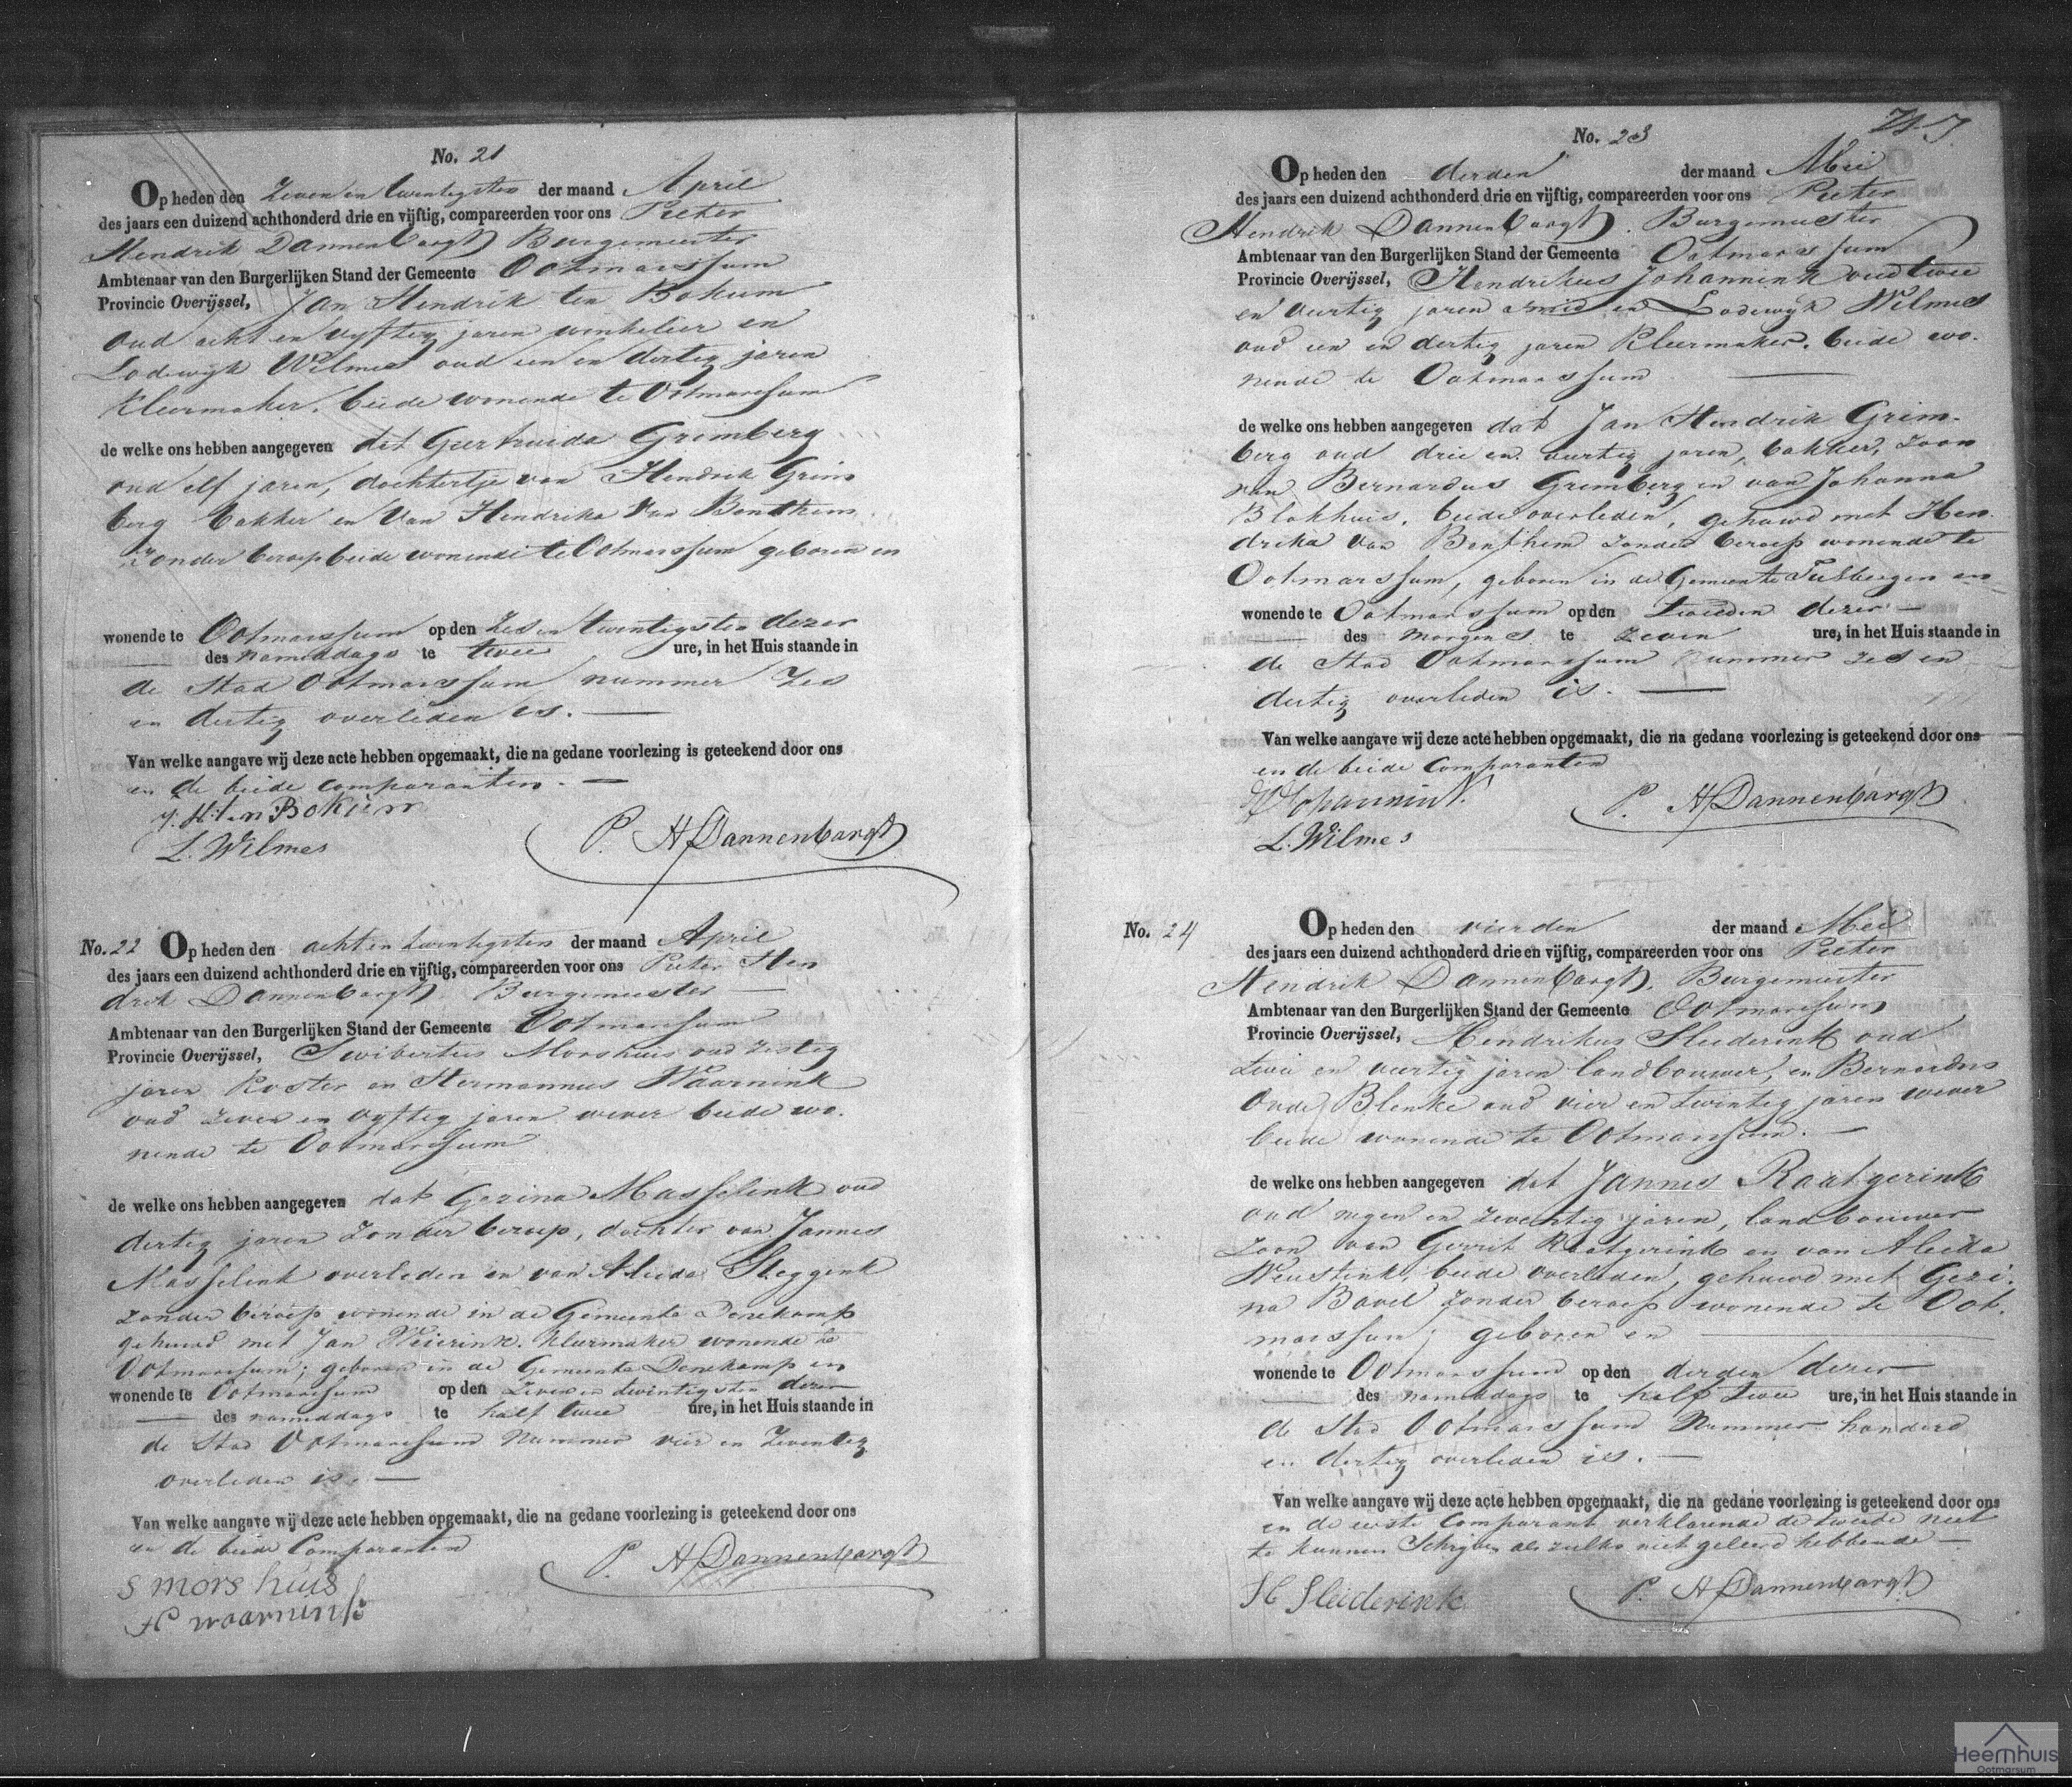 No. 21
Op heden den zeven en twintigsten der maand April
des jaars een duizend achthonderd drie en vijftig, compareerden voor ons Pieter
Hendrik Dannenbargh Burgemeester
Ambtenaar van den Burgerlijken Stand der Gemeente Ootmarssum
Provincie Overijssel, Jan Hendrik ten Bokum
oud acht en vyftig jaren winkelier en
Lodewyk Wilmes oud een en dertig jaren
kleermaker, beide wonende te Ootmarssum
de welke ons hebben aangegeven dat Geertruida Grimberg
oud elf jaren, dochtertje van Hendrik Grim
berg bakker en van Hendrika van Benthem
zonder beroep beide wonende te Ootmarssum geboren en
wonende te Ootmarssum op den zes en twintigsten dezer
des namiddags te twee ure, in het Huis staande in
de Stad Ootmarssum nummer zes
en dertig overleden is.
Van welke aangave wij deze acte hebben opgemaakt, die na gedane voorlezing is geteekend door ons
en de beide comparanten.
J. H. ten Bokum
L. Wilmes
P. H Dannenbargh
No. 22 Op heden den acht en twintigsten der maand April
des jaars een duizend achthonderd drie en vijftig, compareerden voor ons Pieter Hen
drik Dannenbargh Burgemeester
Ambtenaar van den Burgerlijken Stand der Gemeente Ootmarssum
Provincie Overijssel, Swibertus Morshuis oud zestig
jaren Koster en Hermannus Waarnink
oud zeven en vyftig jaren wever beide wo.
nende te Ootmarssum
de welke ons hebben aangegeven dat Gezina Masselink oud
dertig jaren zonder beroep, dochter van Jannes
Masselink overleden en van Aleida Steggink
zonder beroep wonende in de Gemeente Denekamp
gehuwd met Jan Weierink. kleermaker wonende te
Ootmarssum; geboren in de Gemeente Denekamp en
wonende te Ootmarssum op den zeven en twintigsten dezer
des namiddags te half twee ure, in het Huis staande in
de Stad Ootmarssum Nummer vier en zeventig
overleden is.
Van welke aangave wij deze acte hebben opgemaakt, die na gedane voorlezing is geteekend door ons
en de beide Comparanten
S morshuis
H waarnink
P. H Dannenbargh
No. 23
Op heden den derden der maand Mei
des jaars een duizend achthonderd drie en vijftig, compareerden voor ons Pieter
Hendrik Dannenbargh. Burgemeester
Ambtenaar van den Burgerlijken Stand der Gemeente Ootmarssum
Provincie Overijssel, Hendrikus Johannink oud twee
en veertig jaren smid en Lodewyk Wilmes
oud een en dertig jaren Kleermaker. beide wo.
nende te Ootmarssum
de welke ons hebben aangegeven dat Jan Hendrik Grim-
berg oud drie en veertig jaren, bakker, zoon
van Bernardus Grimberg en van Johanna
Blokhuis, beide overleden, gehuwd met Hen
drika van Benthem zonder beroep wonende te
Ootmarssum, geboren in de Gemeente Tubbergen en
wonende te Ootmarssum op den tweeden dezer
des morgens te zeven ure, in het Huis staande in
de Stad Ootmarssum Nummer zes en
dertig overleden is.
Van welke aangave wij deze acte hebben opgemaakt, die na gedane voorlezing is geteekend door ons
en de beide Comparanten
H Johannink.
L. Wilmes
P. H Dannenbargh
No. 24 Op heden den vierden der maand Mei
des jaars een duizend achthonderd drie en vijftig, compareerden voor ons Pieter
Hendrik Dannenbargh, Burgemeester
Ambtenaar van den Burgerlijken Stand der Gemeente Ootmarssum
Provincie Overijssel, Hendrikus Sleiderink oud
twee en veertig jaren landbouwer, en Bernardus
Oude Blenke oud vier en twintig jaren wever
beide wonende te Ootmarssum.
de welke ons hebben aangegeven dat Jannes Raatgerink
oud negen en zeventig jaren, landbouwer
zoon van Gerrit Raatgerink en van Aleida
Weustink, beide overleden, gehuwd met Gezi.
na Bavel zonder beroep wonende te Oot.
marssum; geboren en
wonende te Ootmarssum op den derden dezer
des namiddags te half twee ure, in het Huis staande in
de Stad Ootmarssum Nummer honderd
en dertig overleden is.
Van welke aangave wij deze acte hebben opgemaakt, die na gedane voorlezing is geteekend door ons
en de eerste Comparant verklarende de tweede niet
te kunnen Schryven als zulks niet geleerd hebbende
H Sleiderink
P. H Dannenbargh
Heemhuis
Ootmarsum